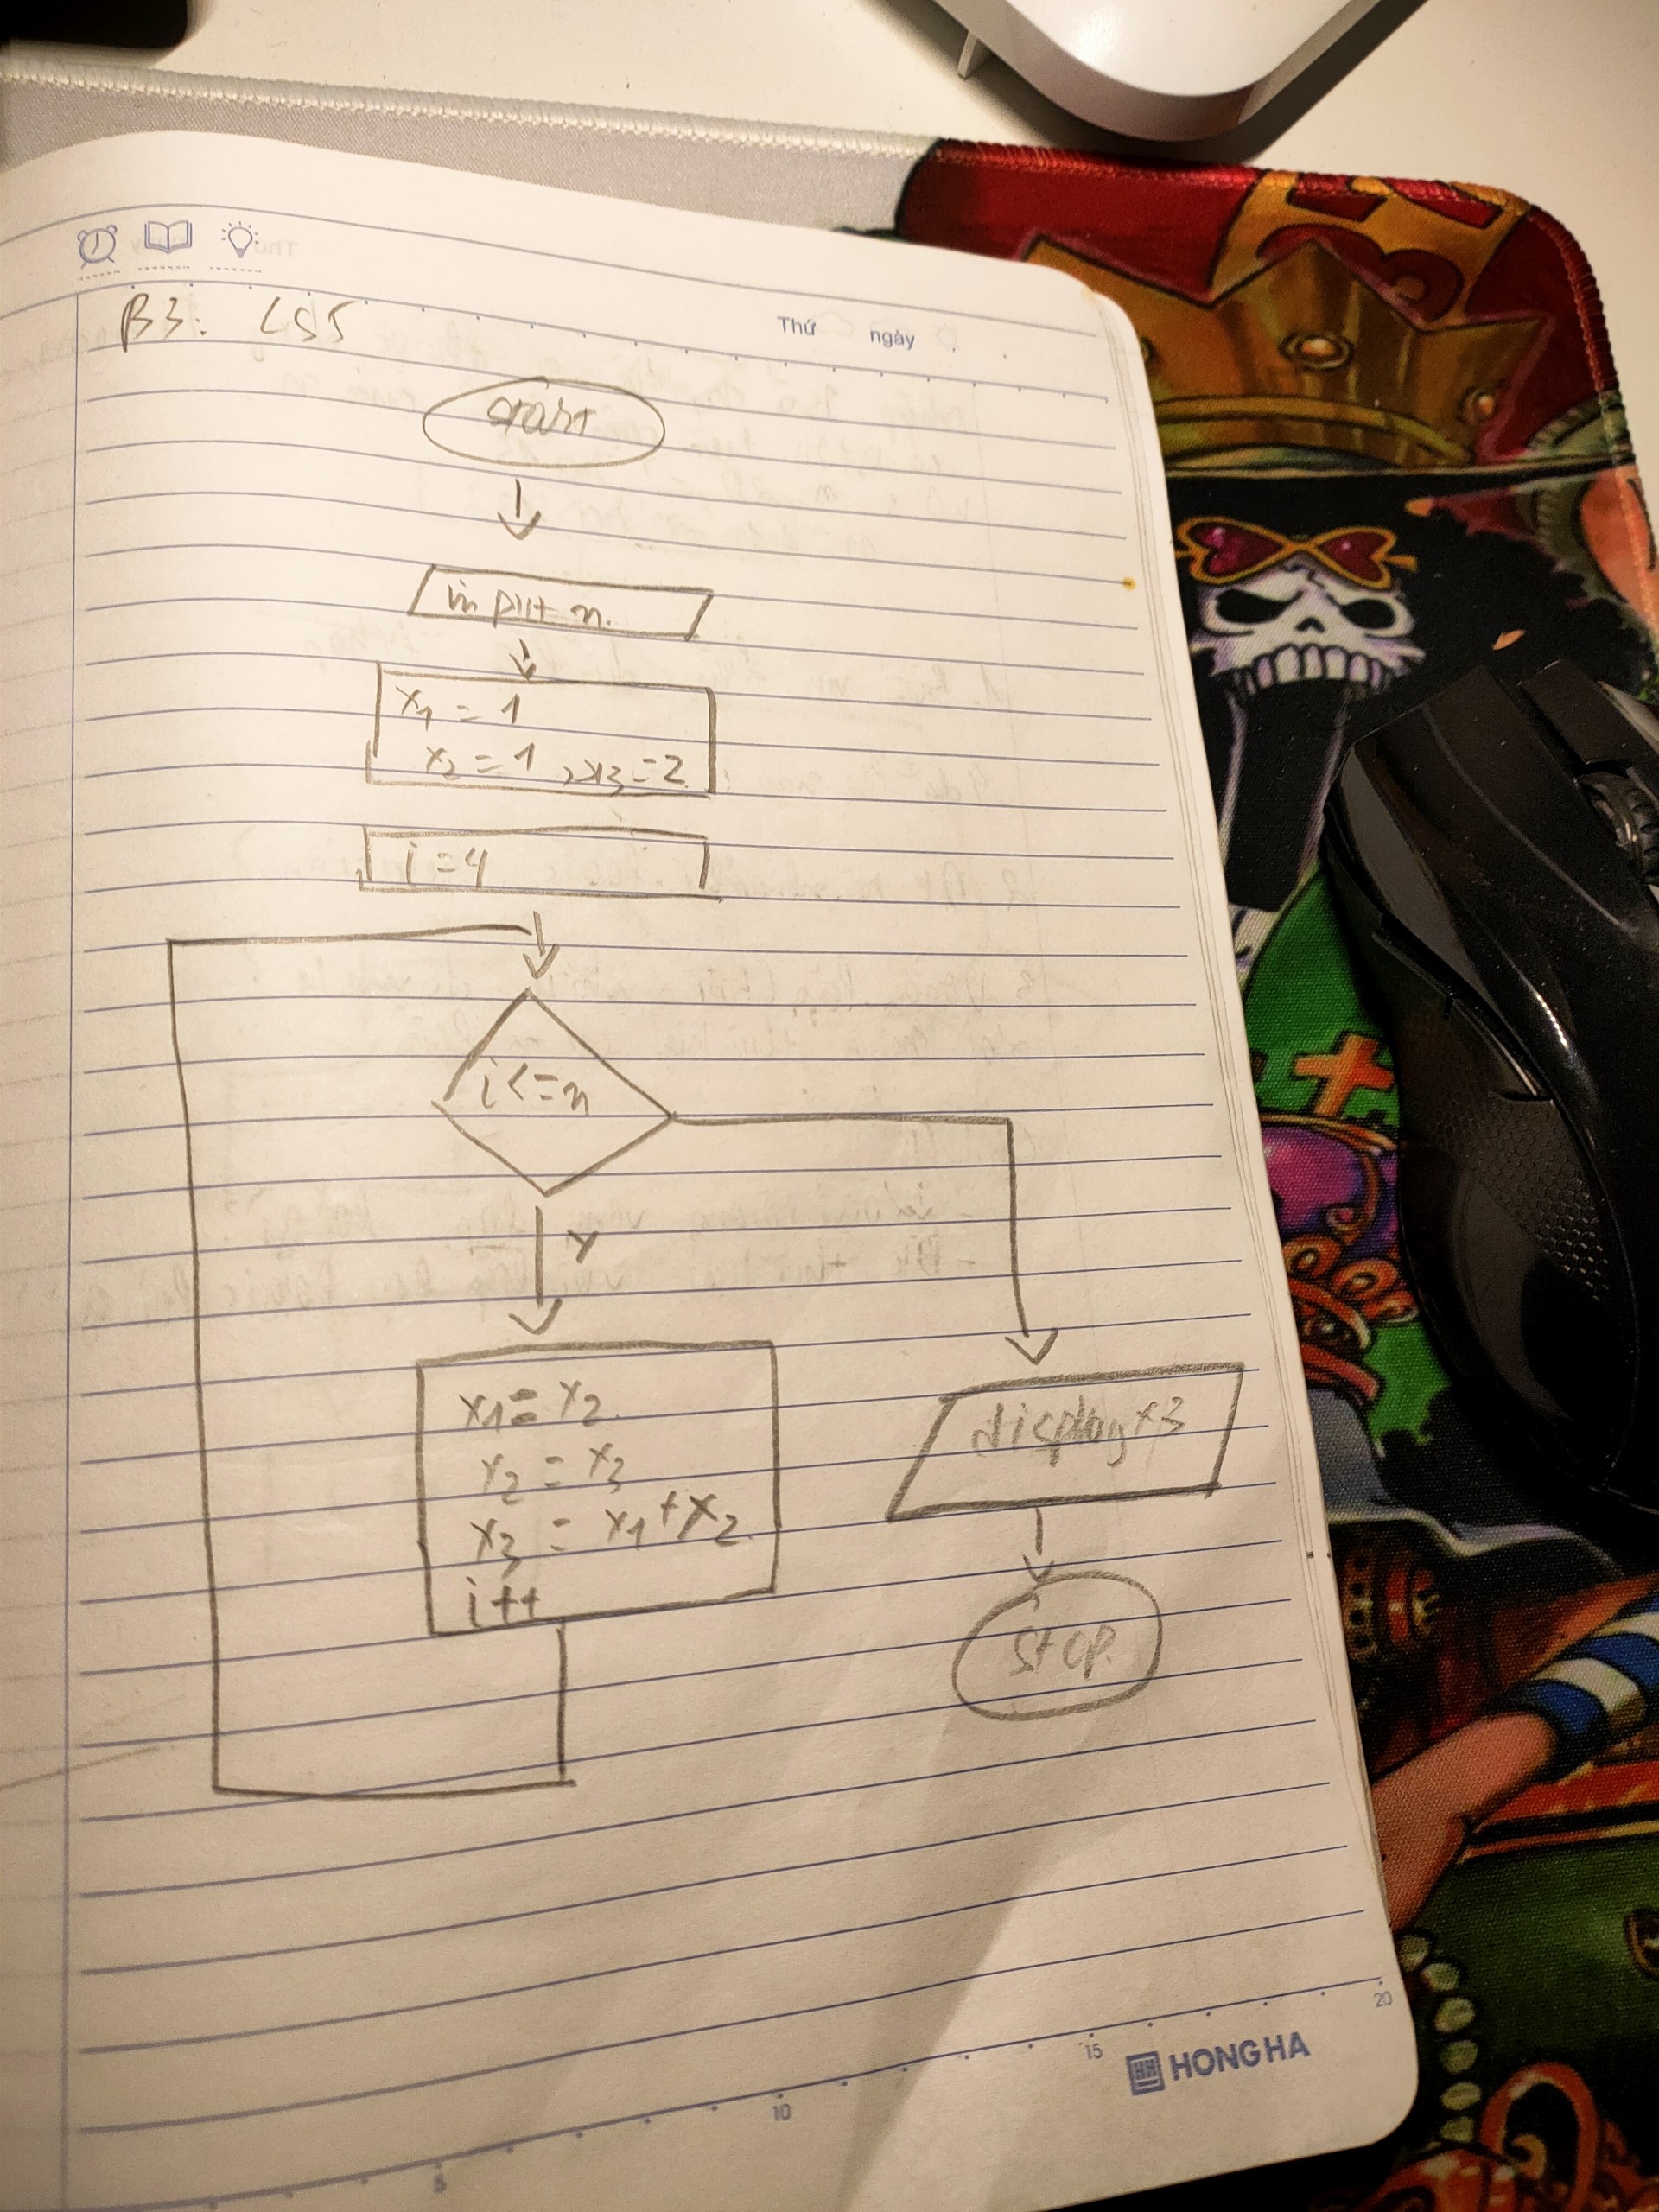 Thứ ngày
B3: LS5
start
input n.
x1 = 1
x2 = 1, x3 = 2
i = 4
i <= n
Y
x1 = x2
x2 = x3
x3 = x1 + x2
i++
display x3
STOP.
5 10 15 20
HH HONG HA